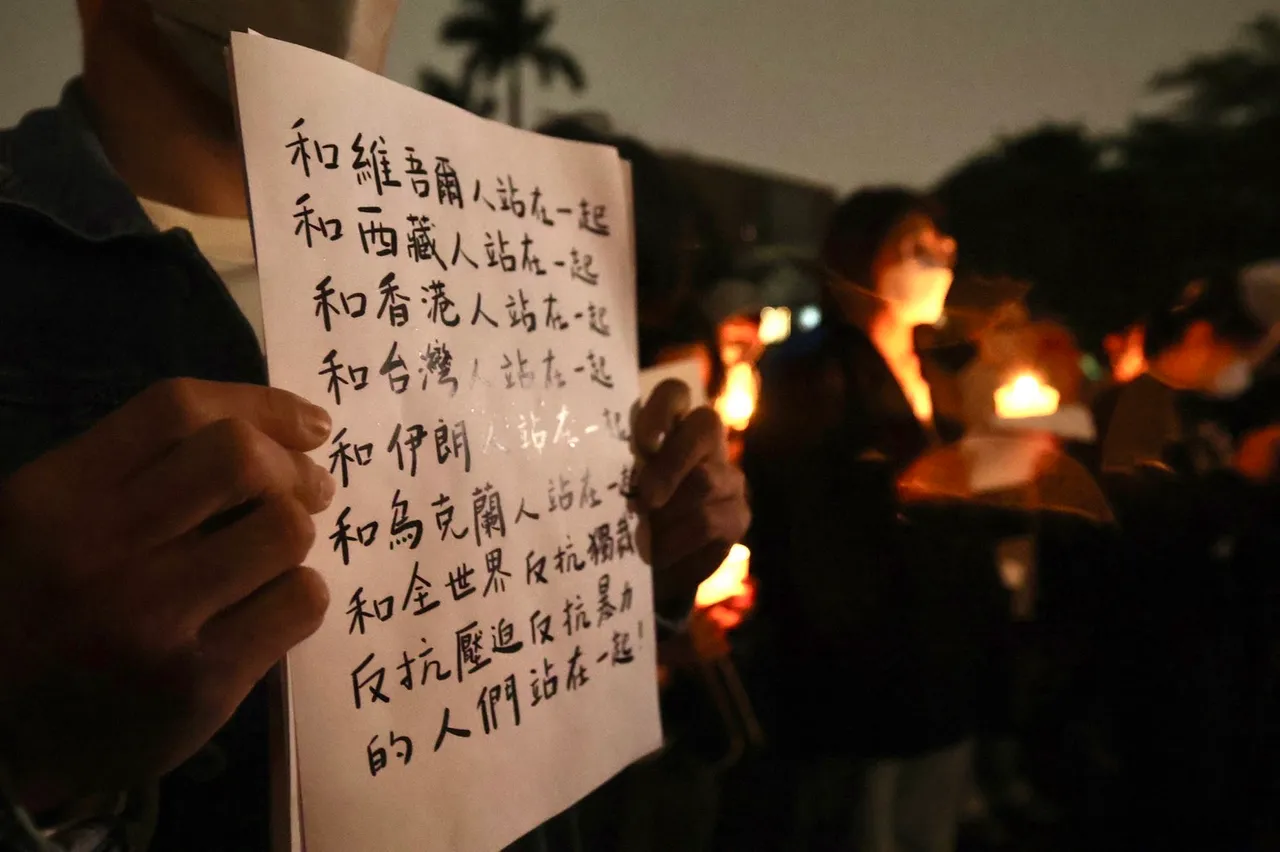 和維吾爾人站在一起
和西藏人站在一起
和香港人站在一起
和台灣人站在一起
和伊朗人站在一起
和烏克蘭人站在一起
和全世界反抗獨裁
反抗壓迫反抗暴力
的人們站在一起!